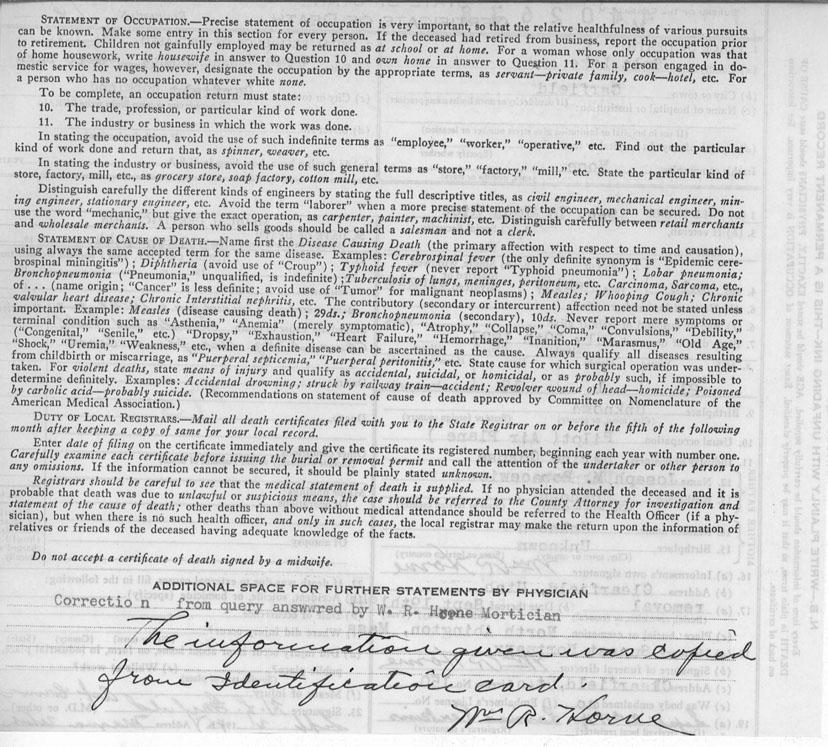 STATEMENT OF OCCUPATION.—Precise statement of occupation is very important, so that the relative healthfulness of various pursuits
can be known. Make some entry in this section for every person. If the deceased had retired from business, report the occupation prior
to retirement. Children not gainfully employed may be returned as at school or at home. For a woman whose only occupation was that
of home housework, write housewife in answer to Question 10 and own home in answer to Question 11. For a person engaged in do-
mestic service for wages, however, designate the occupation by the appropriate terms, as servant—private family, cook—hotel, etc. For
a person who has no occupation whatever white none.
To be complete, an occupation return must state:
10. The trade, profession, or particular kind of work done.
11. The industry or business in which the work was done.
In stating the occupation, avoid the use of such indefinite terms as "employee," "worker," "operative," etc. Find out the particular
kind of work done and return that, as spinner, weaver, etc.
In stating the industry or business, avoid the use of such general terms as "store," "factory," "mill," etc. State the particular kind of
store, factory, mill, etc., as grocery store, soap factory, cotton mill, etc.
Distinguish carefully the different kinds of engineers by stating the full descriptive titles, as civil engineer, mechanical engineer, min-
ing engineer, stationary engineer, etc. Avoid the term "laborer" when a more precise statement of the occupation can be secured. Do not
use the word "mechanic," but give the exact operation, as carpenter, painter, machinist, etc. Distinguish carefully between retail merchants
and wholesale merchants. A person who sells goods should be called a salesman and not a clerk.
STATEMENT OF CAUSE OF DEATH.—Name first the Disease Causing Death (the primary affection with respect to time and causation),
using always the same accepted term for the same disease. Examples: Cerebrospinal fever (the only definite synonym is "Epidemic cere-
brospinal miningitis") ; Diphtheria (avoid use of "Croup") ; Typhoid fever (never report "Typhoid pneumonia") ; Lobar pneumonia;
Bronchopneumonia ("Pneumonia," unqualified, is indefinite) ; Tuberculosis of lungs, meninges, peritoneum, etc. Carcinoma, Sarcoma, etc.,
of . . . (name origin; "Cancer" is less definite; avoid use of "Tumor" for malignant neoplasms) ; Measles; Whooping Cough; Chronic
valvular heart disease; Chronic Interstitial nephritis, etc. The contributory (secondary or intercurrent) affection need not be stated unless
important. Example: Measles (disease causing death) ; 29ds.; Bronchopneumonia (secondary), 10ds. Never report mere symptoms or
terminal condition such as "Asthenia," "Anemia" (merely symptomatic), "Atrophy," "Collapse," "Coma," "Convulsions," "Debility,"
("Congenital," "Senile, etc.) "Dropsy," "Exhaustion," "Heart Failure," "Hemorrhage," "Inanition," "Marasmus," "Old Age,"
"Shock," "Uremia," "Weakness," etc., when a definite disease can be ascertained as the cause. Always qualify all diseases resulting
from childbirth or miscarriage, as "Puerperal septicemia," "Puerperal peritonitis," etc. State cause for which surgical operation was under-
taken. For violent deaths, state means of injury and qualify as accidental, suicidal, or homicidal, or as probably such, if impossible to
determine definitely. Examples: Accidental drowning; struck by railway train—accident; Revolver wound of head—homicide; Poisoned
by carbolic acid—probably suicide. (Recommendations on statement of cause of death approved by Committee on Nomenclature of the
American Medical Association.)
DUTY OF LOCAL REGISTRARS.—Mail all death certificates filed with you to the State Registrar on or before the fifth of the following
month after keeping a copy of same for your local record.
Enter date of filing on the certificate immediately and give the certificate its registered number, beginning each year with number one.
Carefully examine each certificate before issuing the burial or removal permit and call the attention of the undertaker or other person to
any omissions. If the information cannot be secured, it should be plainly stated unknown.
Registrars should be careful to see that the medical statement of death is supplied. If no physician attended the deceased and it is
probable that death was due to unlawful or suspicious means, the case should be referred to the County Attorney for investigation and
statement of the cause of death; other deaths than above without medical attendance should be referred to the Health Officer (if a phy-
sician), but when there is no such health officer, and only in such cases, the local registrar may make the return upon the information of
relatives or friends of the deceased having adequate knowledge of the facts.
Do not accept a certificate of death signed by a midwife.
ADDITIONAL SPACE FOR FURTHER STATEMENTS BY PHYSICIAN
Correctio n from query answwred by W. R. Horne Mortician
The information given was copied
from Identification card.
Wm R. Horne